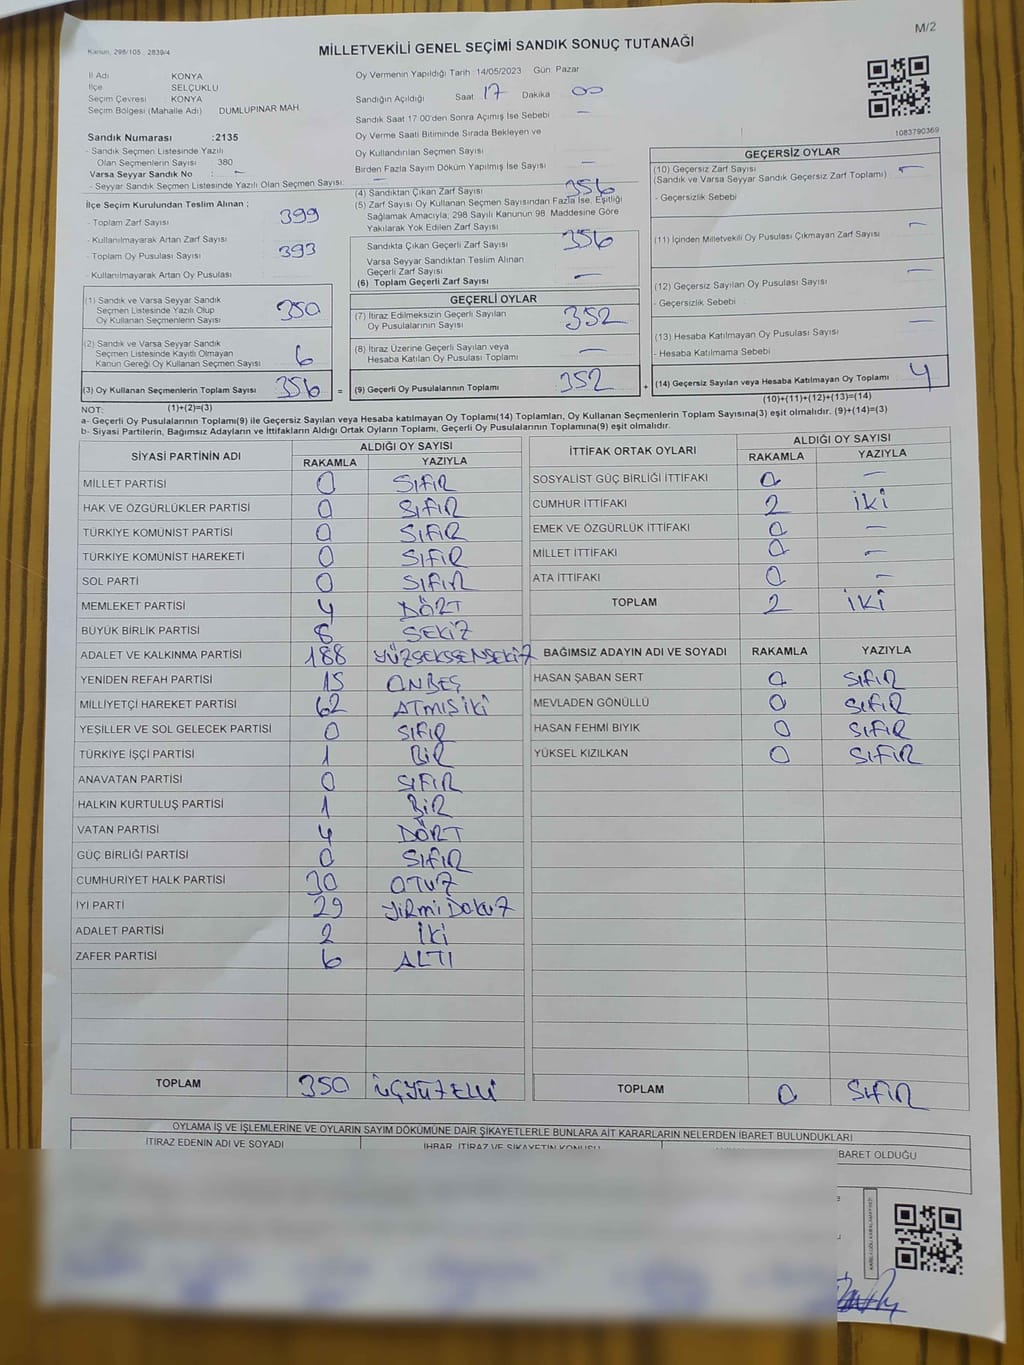 M/2
Kanun, 298/105 , 2839/4
MİLLETVEKİLİ GENEL SEÇİMİ SANDIK SONUÇ TUTANAĞI
İl Adı KONYA
İlçe SELÇUKLU
Seçim Çevresi : KONYA
Seçim Bölgesi (Mahalle Adı) DUMLUPINAR MAH.
Sandık Numarası :2135
- Sandık Seçmen Listesinde Yazılı
Olan Seçmenlerin Sayısı : 380
Varsa Seyyar Sandık No : —
- Seyyar Sandık Seçmen Listesinde Yazılı Olan Seçmen Sayısı: —
Oy Vermenin Yapıldığı Tarih 14/05/2023 Gün: Pazar
Sandığın Açıldığı Saat 17 Dakika 00
Sandık Saat 17 00'den Sonra Açımış İse Sebebi —
Oy Verme Saati Bitiminde Sırada Bekleyen ve
Oy Kullandırılan Seçmen Sayısı
Birden Fazla Sayım Döküm Yapılmış İse Sayısı —
1083790369
İlçe Seçim Kurulundan Teslim Alınan ;
- Toplam Zarf Sayısı 399
- Kullanılmayarak Artan Zarf Sayısı
- Toplam Oy Pusulası Sayısı 393
- Kullanılmayarak Artan Oy Pusulası
(1) Sandık ve Varsa Seyyar Sandık
Seçmen Listesinde Yazılı Olup
Oy Kullanan Seçmenlerin Sayısı 350
(2) Sandık ve Varsa Seyyar Sandık
Seçmen Listesinde Kayıtlı Olmayan
Kanun Gereği Oy Kullanan Seçmen Sayısı 6
(3) Oy Kullanan Seçmenlerin Toplam Sayısı 356 =
(1)+(2)=(3)
(4) Sandıktan Çıkan Zarf Sayısı 356
(5) Zarf Sayısı Oy Kullanan Seçmen Sayısından Fazla İse, Eşitliği
Sağlamak Amacıyla; 298 Sayılı Kanunun 98. Maddesine Göre
Yakılarak Yok Edilen Zarf Sayısı
Sandıkta Çıkan Geçerli Zarf Sayısı 356
Varsa Seyyar Sandıktan Teslim Alınan
Geçerli Zarf Sayısı
(6) Toplam Geçerli Zarf Sayısı —
GEÇERLİ OYLAR
(7) İtiraz Edilmeksizin Geçerli Sayılan
Oy Pusulalarının Sayısı 352
(8) İtiraz Üzerine Geçerli Sayılan veya
Hesaba Katılan Oy Pusulası Toplamı —
(9) Geçerli Oy Pusulalarının Toplamı 352 +
GEÇERSİZ OYLAR
(10) Geçersiz Zarf Sayısı —
(Sandık ve Varsa Seyyar Sandık Geçersiz Zarf Toplamı)
- Geçersizlik Sebebi
(11) İçinden Milletvekili Oy Pusulası Çıkmayan Zarf Sayısı —
(12) Geçersiz Sayılan Oy Pusulası Sayısı —
- Geçersizlik Sebebi :
(13) Hesaba Katılmayan Oy Pusulası Sayısı —
- Hesaba Katılmama Sebebi
(14) Geçersiz Sayılan veya Hesaba Katılmayan Oy Toplamı 4
(10)+(11)+(12)+(13)=(14)
NOT:
a- Geçerli Oy Pusulalarının Toplamı(9) ile Geçersiz Sayılan veya Hesaba katılmayan Oy Toplamı(14) Toplamları, Oy Kullanan Seçmenlerin Toplam Sayısına(3) eşit olmalıdır. (9)+(14)=(3)
b- Siyasi Partilerin, Bağımsız Adayların ve İttifakların Aldığı Ortak Oyların Toplamı, Geçerli Oy Pusulalarının Toplamına(9) eşit olmalıdır.
SİYASİ PARTİNİN ADI ALDIĞI OY SAYISI
RAKAMLA YAZIYLA
MİLLET PARTİSİ 0 SIFIR
HAK VE ÖZGÜRLÜKLER PARTİSİ 0 SIFIR
TÜRKİYE KOMÜNİST PARTİSİ 0 SIFIR
TÜRKİYE KOMÜNİST HAREKETİ 0 SIFIR
SOL PARTİ 0 SIFIR
MEMLEKET PARTİSİ 4 DÖRT
BÜYÜK BİRLİK PARTİSİ 8 SEKİZ
ADALET VE KALKINMA PARTİSİ 188 YÜZSEKSENSEKİZ
YENİDEN REFAH PARTİSİ 15 ONBEŞ
MİLLİYETÇİ HAREKET PARTİSİ 62 ATMIŞİKİ
YEŞİLLER VE SOL GELECEK PARTİSİ 0 SIFIR
TÜRKİYE İŞÇİ PARTİSİ 1 BİR
ANAVATAN PARTİSİ 0 SIFIR
HALKIN KURTULUŞ PARTİSİ 1 BİR
VATAN PARTİSİ 4 DÖRT
GÜÇ BİRLİĞİ PARTİSİ 0 SIFIR
CUMHURİYET HALK PARTİSİ 30 OTUZ
İYİ PARTİ 29 YİRMİ DOKUZ
ADALET PARTİSİ 2 İKİ
ZAFER PARTİSİ 6 ALTI
TOPLAM 350 ÜÇYÜZELLİ
İTTİFAK ORTAK OYLARI ALDIĞI OY SAYISI
RAKAMLA YAZIYLA
SOSYALİST GÜÇ BİRLİĞİ İTTİFAKI 0 —
CUMHUR İTTİFAKI 2 İKİ
EMEK VE ÖZGÜRLÜK İTTİFAKI 0 —
MİLLET İTTİFAKI 0 —
ATA İTTİFAKI 0 —
TOPLAM 2 İKİ
BAĞIMSIZ ADAYIN ADI VE SOYADI RAKAMLA YAZIYLA
HASAN ŞABAN SERT 0 SIFIR
MEVLADEN GÖNÜLLÜ 0 SIFIR
HASAN FEHMİ BIYIK 0 SIFIR
YÜKSEL KIZILKAN 0 SIFIR
TOPLAM 0 SIFIR
OYLAMA İŞ VE İŞLEMLERİNE VE OYLARIN SAYIM DÖKÜMÜNE DAİR ŞİKAYETLERLE BUNLARA AİT KARARLARIN NELERDEN İBARET BULUNDUKLARI
İTİRAZ EDENİN ADI VE SOYADI İHBAR, İTİRAZ VE ŞİKAYETİN KONUSU BARET OLDUĞU